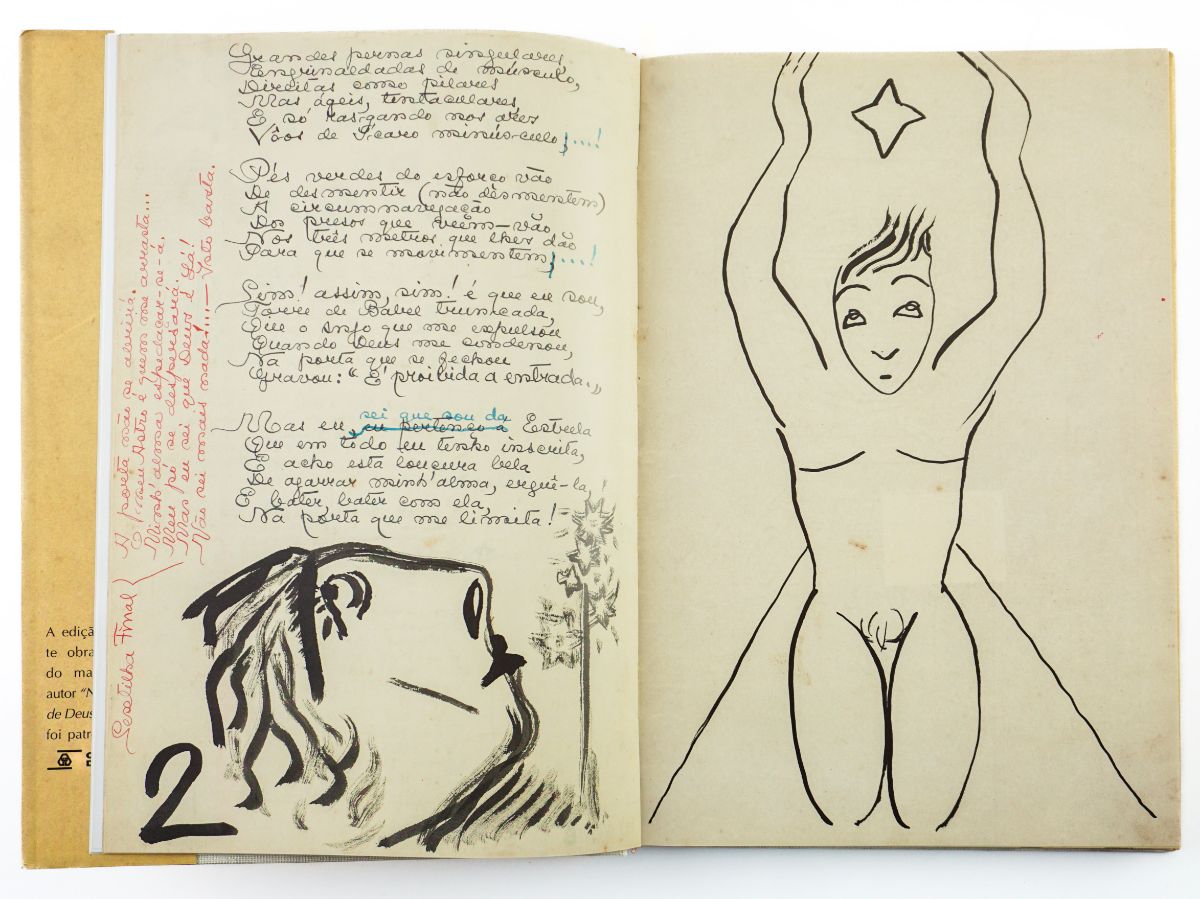 Grandes pernas singulares,
Engrinaldadas de músculo,
Direitas como pilares
Mas ágeis, tentaculares,
E só rasgando nos ares
Vôos de Ícaro minúsculo,...!
Pés verdes do esforço vão
De desmentir (não desmentem)
A circumnavegação
Dos presos que veem-vão,
Nos três metros que lhes dão
Para que se movimentem,...!
Sim! assim, sim! é que eu sou,
Torre de Babel truncada,
Que o Anjo que me expulsou
Quando Deus me condenou,
Na porta que se fechou
Gravou: "É proibida a entrada."
sei que sou da
Mas eu, eu pertenço à Estrela
Que em todo eu tenho inscrita,
E acho esta loucura bela
De agarrar minh'alma, erguê-la,
E bater, bater com ela,
Na porta que me limita!
Sextilha Final
A porta não se abrirá.
E meu Astro é quem me arrasta...
Minh'alma espedaçar-se-á.
Meu pó se dispersará.
Mas eu sei que Deus é Lá!
Não sei mais nada... — Isto basta.
2
A ediçã
te obra
do ma
autor "N
de Deus
foi patr